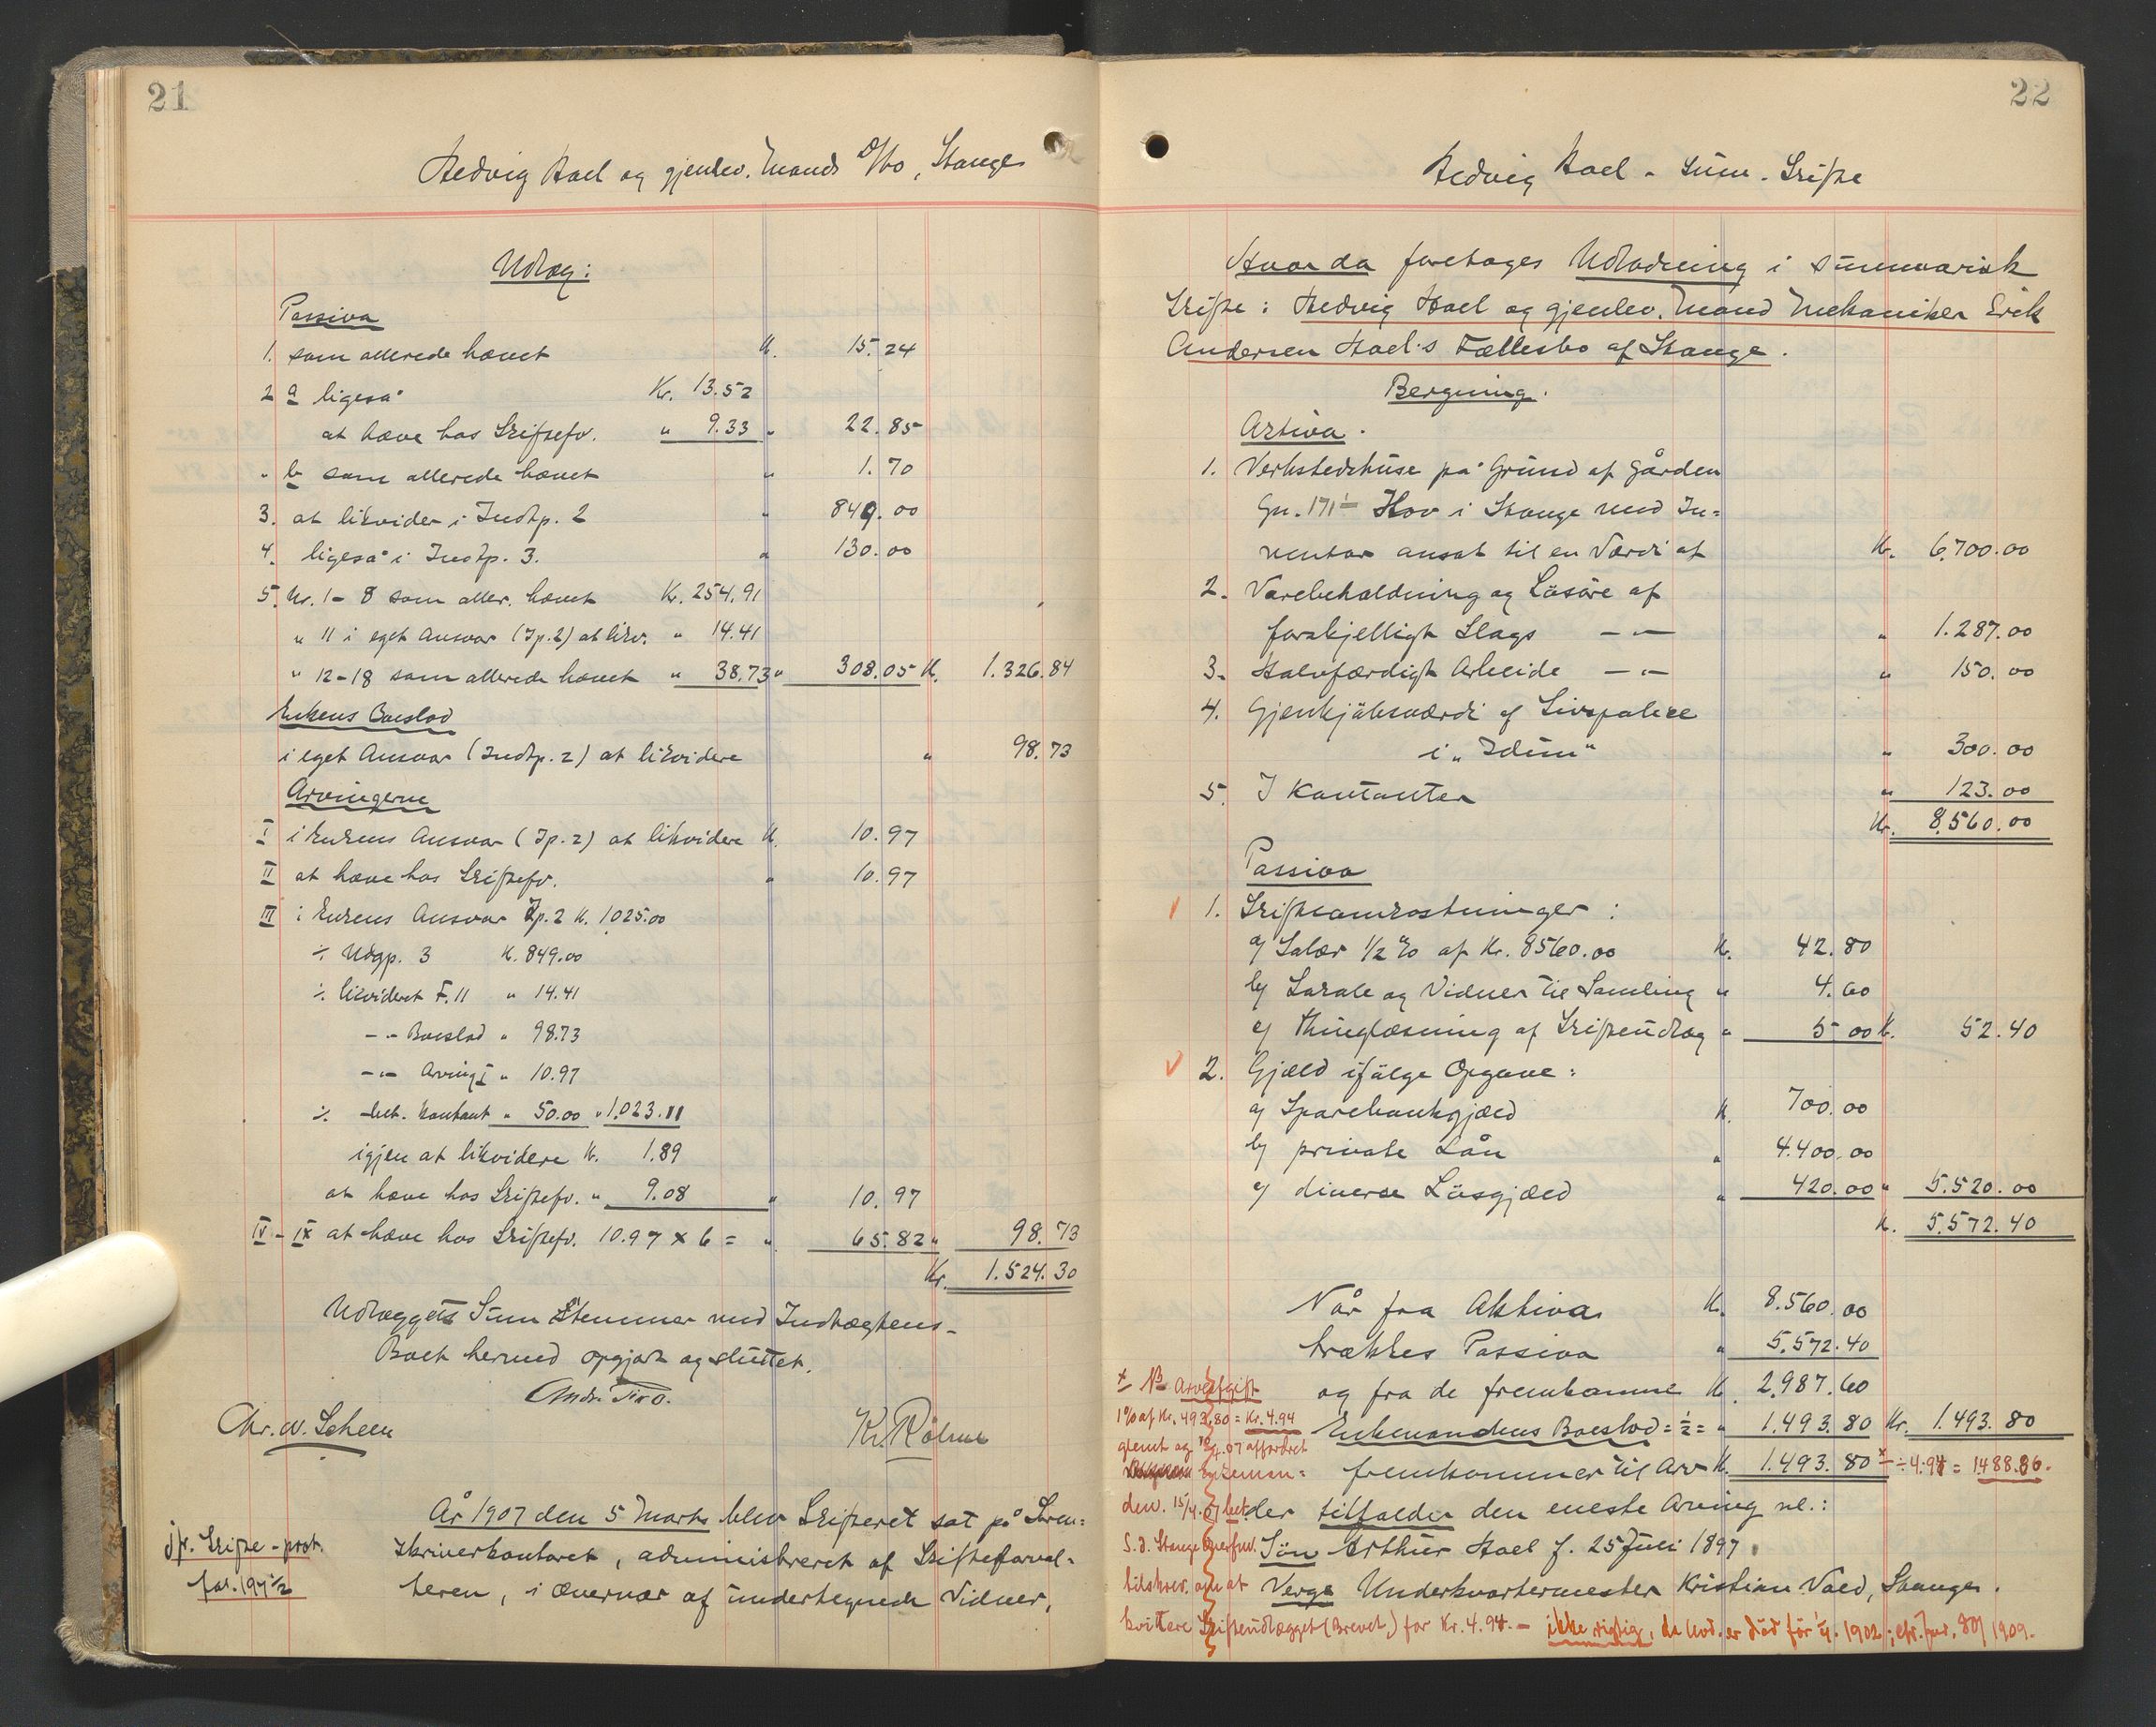 21
Hedvig Hoel og gjenlev. Mands D/bo, Stange
Udlæg:
Passiva
1. som allerede hævet K. 15.24
2 a ligeså Kr. 13.52
at hæve hos Skiftefv. " 9.33 " 22.85
" b som allerede hævet " 1.70
3. at likvidere i Indtp. 2 " 849.00
4. ligeså i Indtp. 3. " 130.00
5. Nr. 1-8 som aller. hævet Kr. 254.91
" 11 i eget Ansvar (Ip. 2) at likv. " 14.41
" 12-18 som allerede hævet " 38.73 " 308.05 K. 1.326.84
Enkens Boeslod
i eget Ansvar (Indtp. 2) at likvidere " 98.73
Arvingerne
I i Enkens Ansvar (Ip. 2) at likvidere K. 10.97
II at hæve hos Skiftefv. " 10.97
III i Enkens Ansvar Ip. 2 K. 1025.00
÷ Udgp. 3 K. 849.00
÷ likvideret F. 11 " 14.41
- " - Boeslod " 98.73
- " - Arving I " 10.97
÷ bet. kontant " 50.00 " 1.023.11
igjen at likvidere K. 1.89
at hæve hos Skiftefv. " 9.08 " 10.97
IV - IX at hæve hos Skiftefv. 10.97 x 6 = " 65.82 " 98.73
Kr. 1.524.30
Udlæggets Sum stemmer med Indtægtens -
Boet hermed opgjort og sluttet.
Chr. W. Scheen
År 1907 den 5 Marts blev Skifteret sat på Soren-
skriverkontoret, administreret af Skifteforval-
teren, i Overvær af undertegnede Vidner,
jfr. Skifte-prot.
fol. 197 1/2
22
Hedvig Hoel - Sum. Skifte
Hvor da foretoges Udlodning i summarisk
Skifte: Hedvig Hoel og gjenlev. Mand Mekaniker Erik
Andersen Hoel's Fællesbo af Stange.
Bergning.
Activa.
1. Verkstedshuse på Grund af Gården
Gn. 171/1 Hov i Stange med In-
ventar ansat til en Værdi af Kr. 6.700.00
2. Varebeholdning og Løsøre af
forskjelligt Slags - " - " 1.287.00
3. Halvfærdigt Arbeide - " - " 150.00
4. Gjenkjøbsværdi af Livspolice
i "Idun" " 300.00
5. I Kontanter " 123.00
Kr. 8.560.00
Passiva
1. Skifteomkostninger:
a) Salær 1/2 % af Kr. 8560.00 K. 42.80
b) Lokale og Vidner til Samling " 4.60
c) Thinglæsning af Skifteudlæg " 5.00 K. 52.40
2. Gjæld ifølge Opgave:
a) Sparebankgjæld K. 700.00
b) private Lån " 4.400.00
c) diverse Løsgjæld " 420.00 " 5.520.00
K. 5.572.40
Når fra Aktiva K. 8.560.00
trækkes Passiva " 5.572.40
og fra de fremkomne K. 2.987.60
Enkemandens Boeslod = 1/2 = " 1.493.80 Kr. 1.493.80
fremkommer til Arv K. 1.493.80 x ÷ 4.94 = 1488.86.
der tilfalder den eneste Arving nl.:
Søn Arthur Hoel f. 25 Juli 1897.
Verge Underkvartermester Kristian Vold, Stange.
x NB Arveafgift
1% af Kr. 493.80 = Kr. 4.94
glemt og 10/4.07 affordret
Enkeman-
den. 15/4.07 bet.
S. d. Stange Overfm.
tilskrev. om at
kvittere Skifteudlægget (Brevet) for Kr. 4.94. - ikke rigtig, da Avd. er død før 1/4. 1902; cfr. Jur. 801 1909.